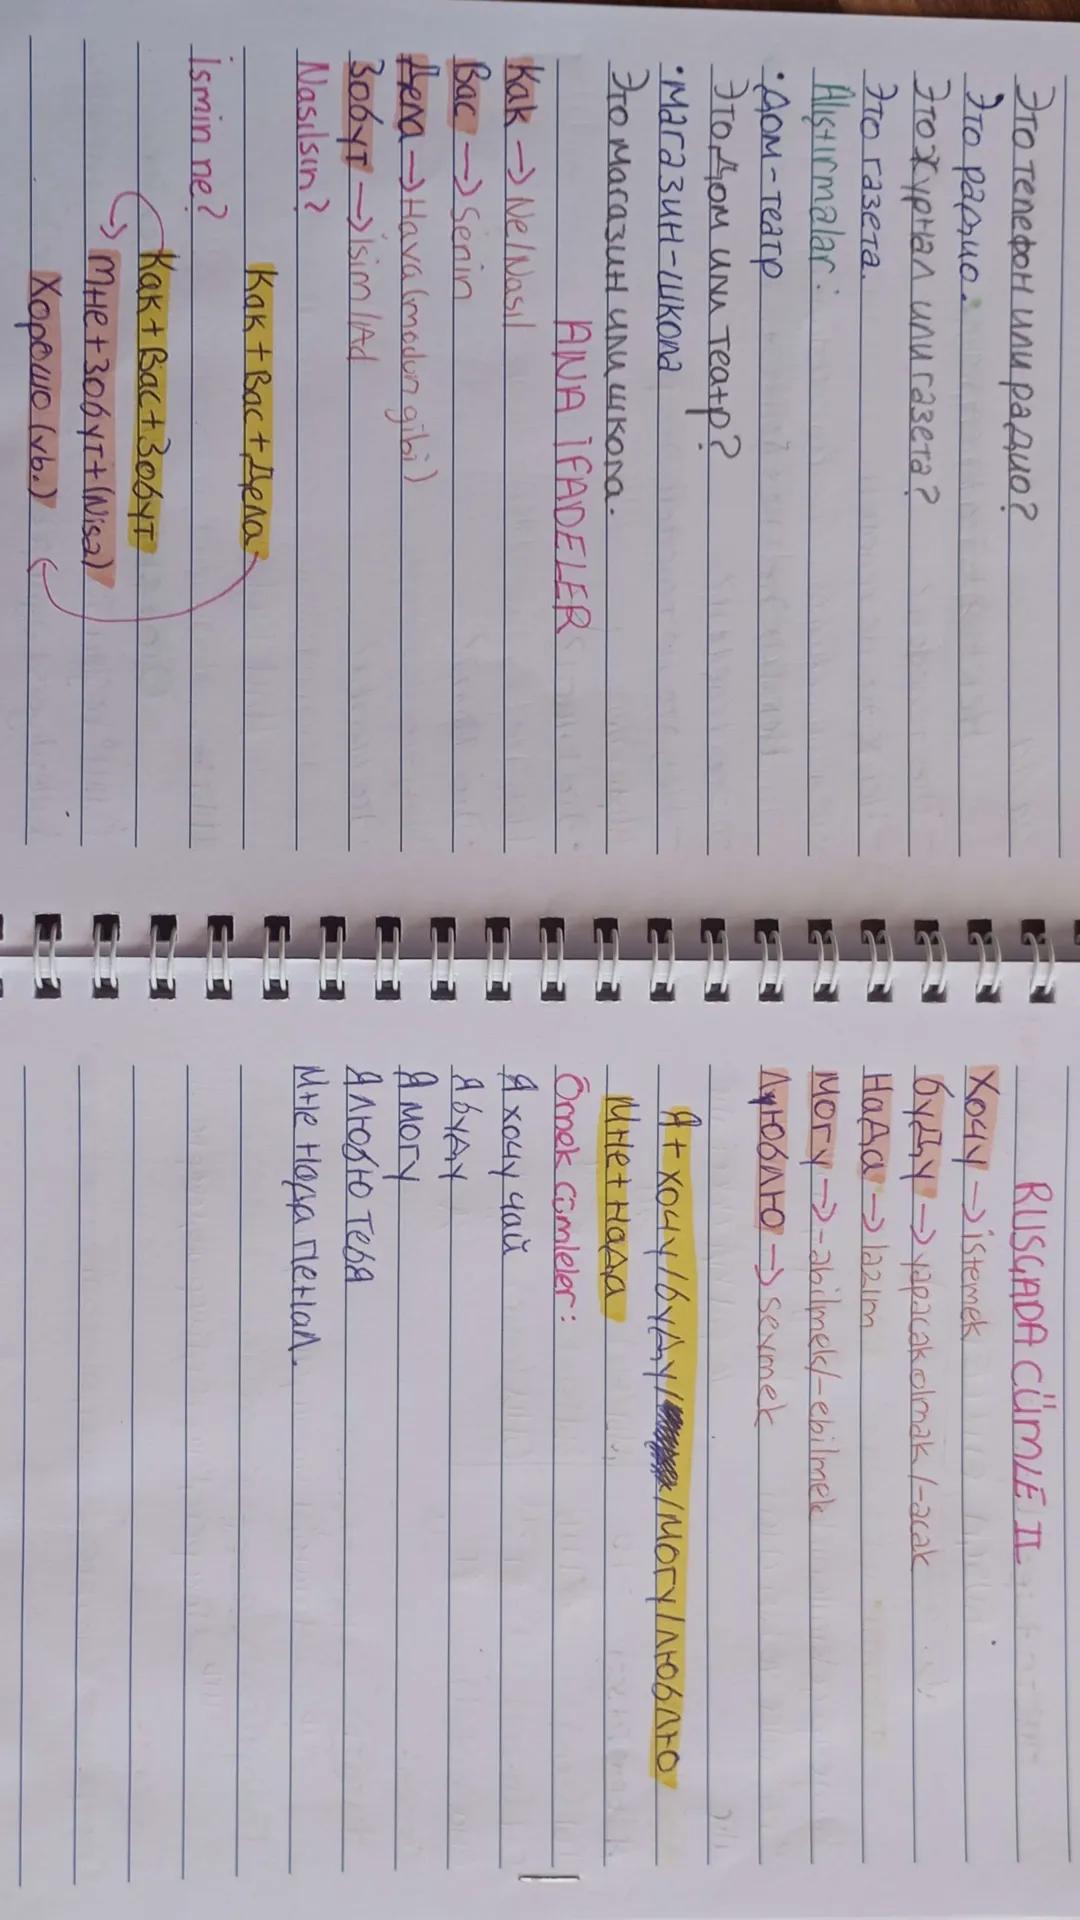 Это телефон или радио?
Это радио.
Это журнал или газета?
Это газета.
Alıştırmalar:
• Дом-театр
Это дом или театр?
• Магазин-школа
Это магазин или школа.
ANA İFADELER
Как → Ne/Nasıl
Вас → Senin
Дела → Hava (madun gibi)
Зобут → İsim/Ad
Nasılsın?
Как + Вас + Дела
İsmin ne?
Как + Вас + Зобут
Мне + Зобут + (Nisa)
Хорошо (vb.)
RUSÇADA CÜMLE II
Хочу → istemek
буду → yapacak olmak/-acak
Нада → lazım
Могу → -abilmek/-ebilmek
Лублю → sevmek
Я + хочу/буду/ /могу/люблю
Мне + нада
Örnek cümleler:
Я хочу чай
Я буду
Я могу
Я люблю тебя
Мне нада пенал.